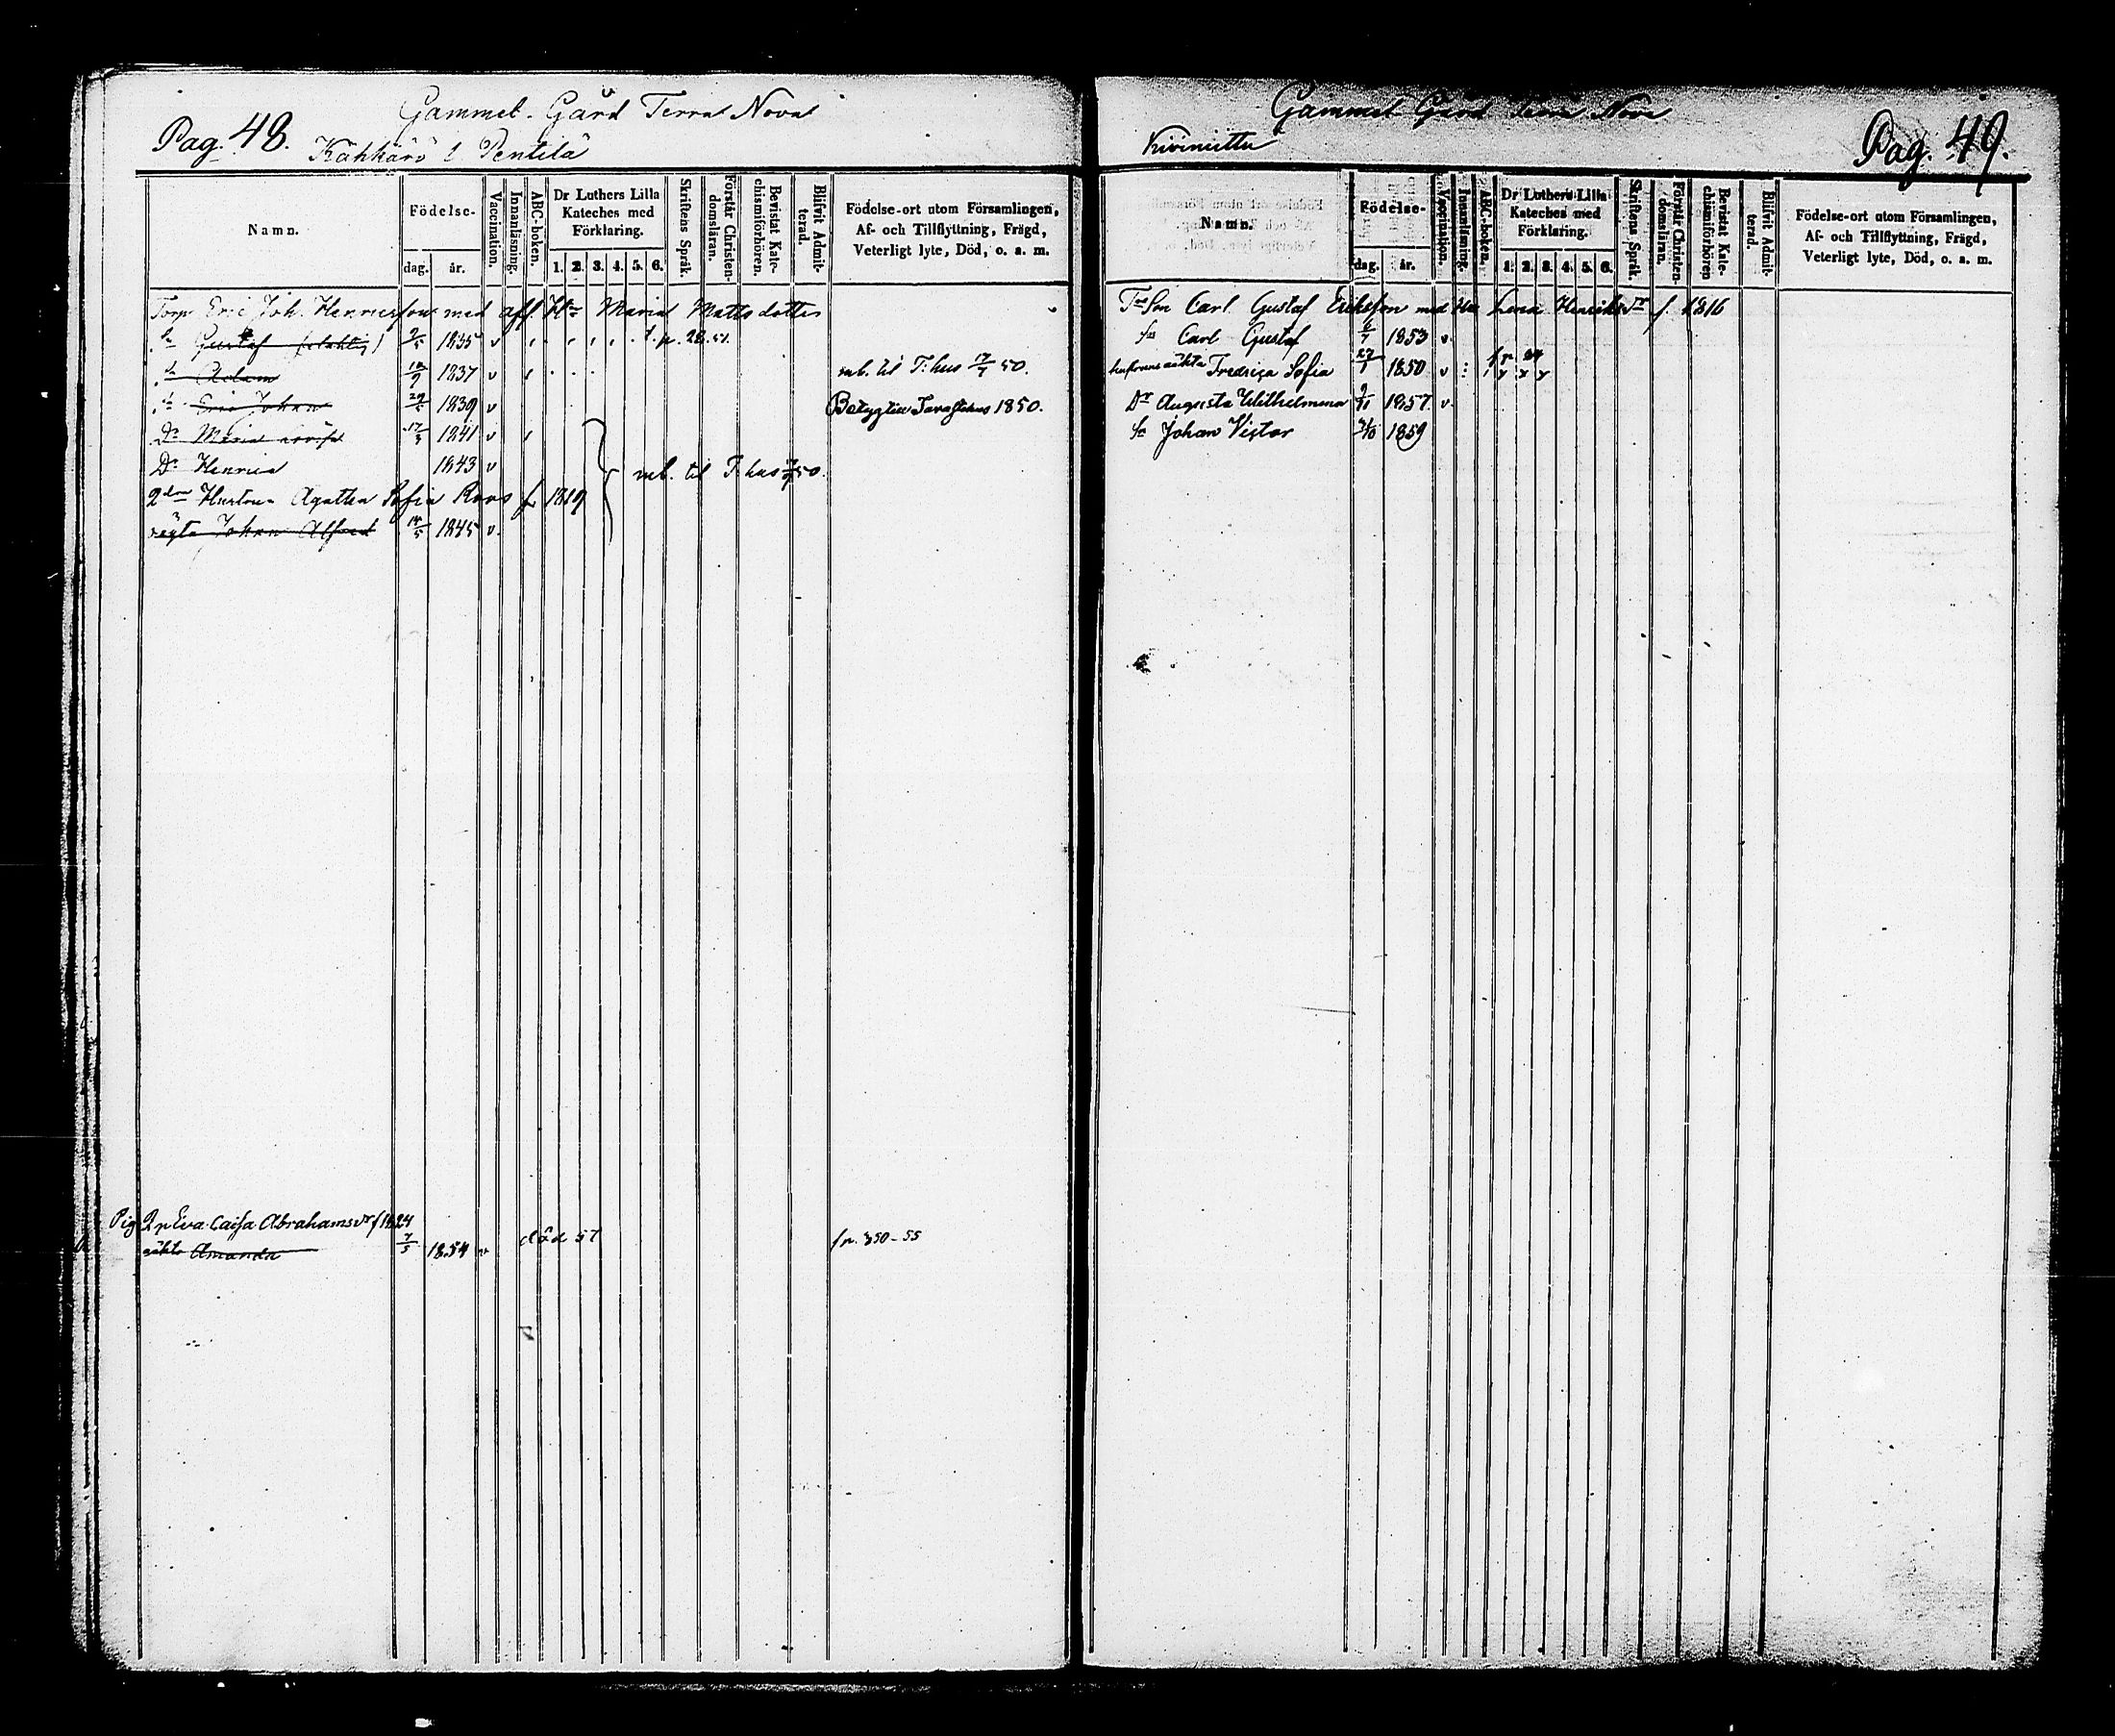 Pag. 48.
Gammel-Gård Terra Nova
Kähkärö l Pentilä
Namn.
Födelse-
dag. år.
Vaccination.
Innanläsning.
ABC-boken.
Dr Luthers Lilla
Kateches med
Förklaring.
1. 2. 3. 4. 5. 6.
Skriftens Språk.
Förstår Christen-
domsläran.
Bevistat Kate-
chismiförhören.
Blifvit Admit-
terad.
Födelse-ort utom Församlingen,
Af- och Tillflyttning, Frägd,
Veterligt lyte, Död, o. a. m.
Torp Eric Joh. Henricsson med afl. Hu Maria Mattsdotter
Sn Gustaf 2/5 1835 v p. 28. 51.
Sn Adam 12/9 1837 v til T:hus 50.
Sn Eric Johan 29/5 1839 v Tavastehus 1850.
Dr Maria 17/3 1841 v
Dr Henrica 1843 v til T.hus 50.
2dra Hustrun Agatha Sofia Roos f 1819
Johan Alfred 14/5 1845 v.
Pig Eva Caisa Abrahamsdr f 1824
oäkta Amanda 7/5 1854 v död 57 fr. 350-55
Gammel Gård Terra Nova
Kivimitta
Pag. 49.
Namn.
Födelse-
dag. år.
Vaccination.
Innanläsning.
ABC-boken.
Dr Luthers Lilla
Kateches med
Förklaring.
1. 2. 3. 4. 5. 6.
Skriftens Språk.
Förstår Christen-
domsläran.
Bevistat Kate-
chismiförhören
Blifvit Admit-
terad.
Födelse-ort utom Församlingen,
Af- och Tillflyttning, Frägd,
Veterligt lyte, Död, o. a. m.
Son Carl Gustaf Eriksson med Hu Lena Henriksdr f. 1816
Sn Carl Gustaf 6/7 1853 v.
hustruns oäkta Fredrica Sofia 1850 v
Dr Augusta Wilhelmina 9/11 1857 v.
Sn Johan Victor 1859